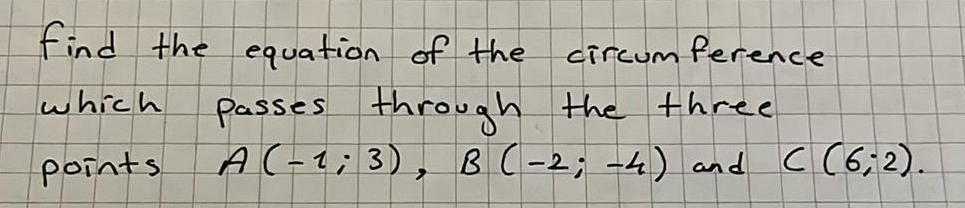 find the equation of the circumference
which passes through the three
points A(-1; 3), B(-2; -4) and C(6;2).